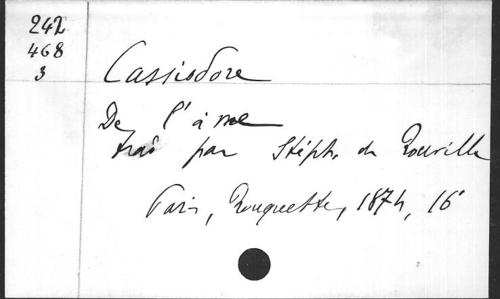 242
468
3
Cassiodore
De l'âme
trad par Stéph. de Rouville
Paris, Rouquette, 1874, 16°